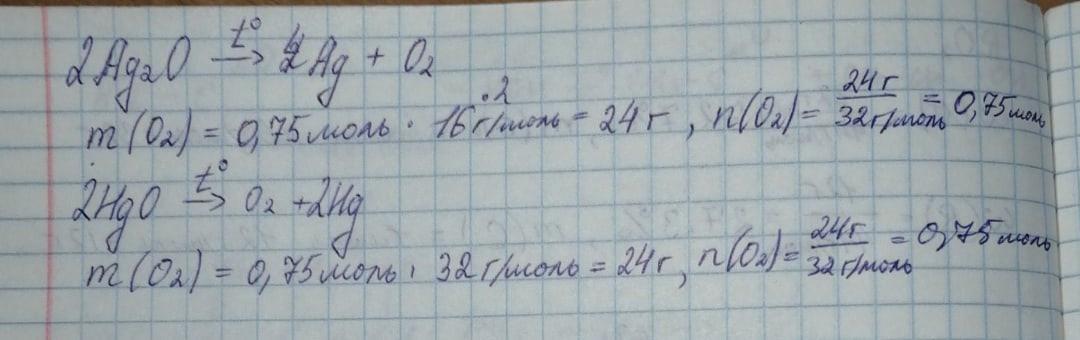 2Ag₂O →t° 4Ag + O₂
m(O₂) = 0,75 моль · 16 · 2 г/моль = 24 г, n(O₂) = 24 г / 32 г/моль = 0,75 моль
2HgO →t° O₂ + 2Hg
m(O₂) = 0,75 моль · 32 г/моль = 24 г, n(O₂) = 24 г / 32 г/моль = 0,75 моль